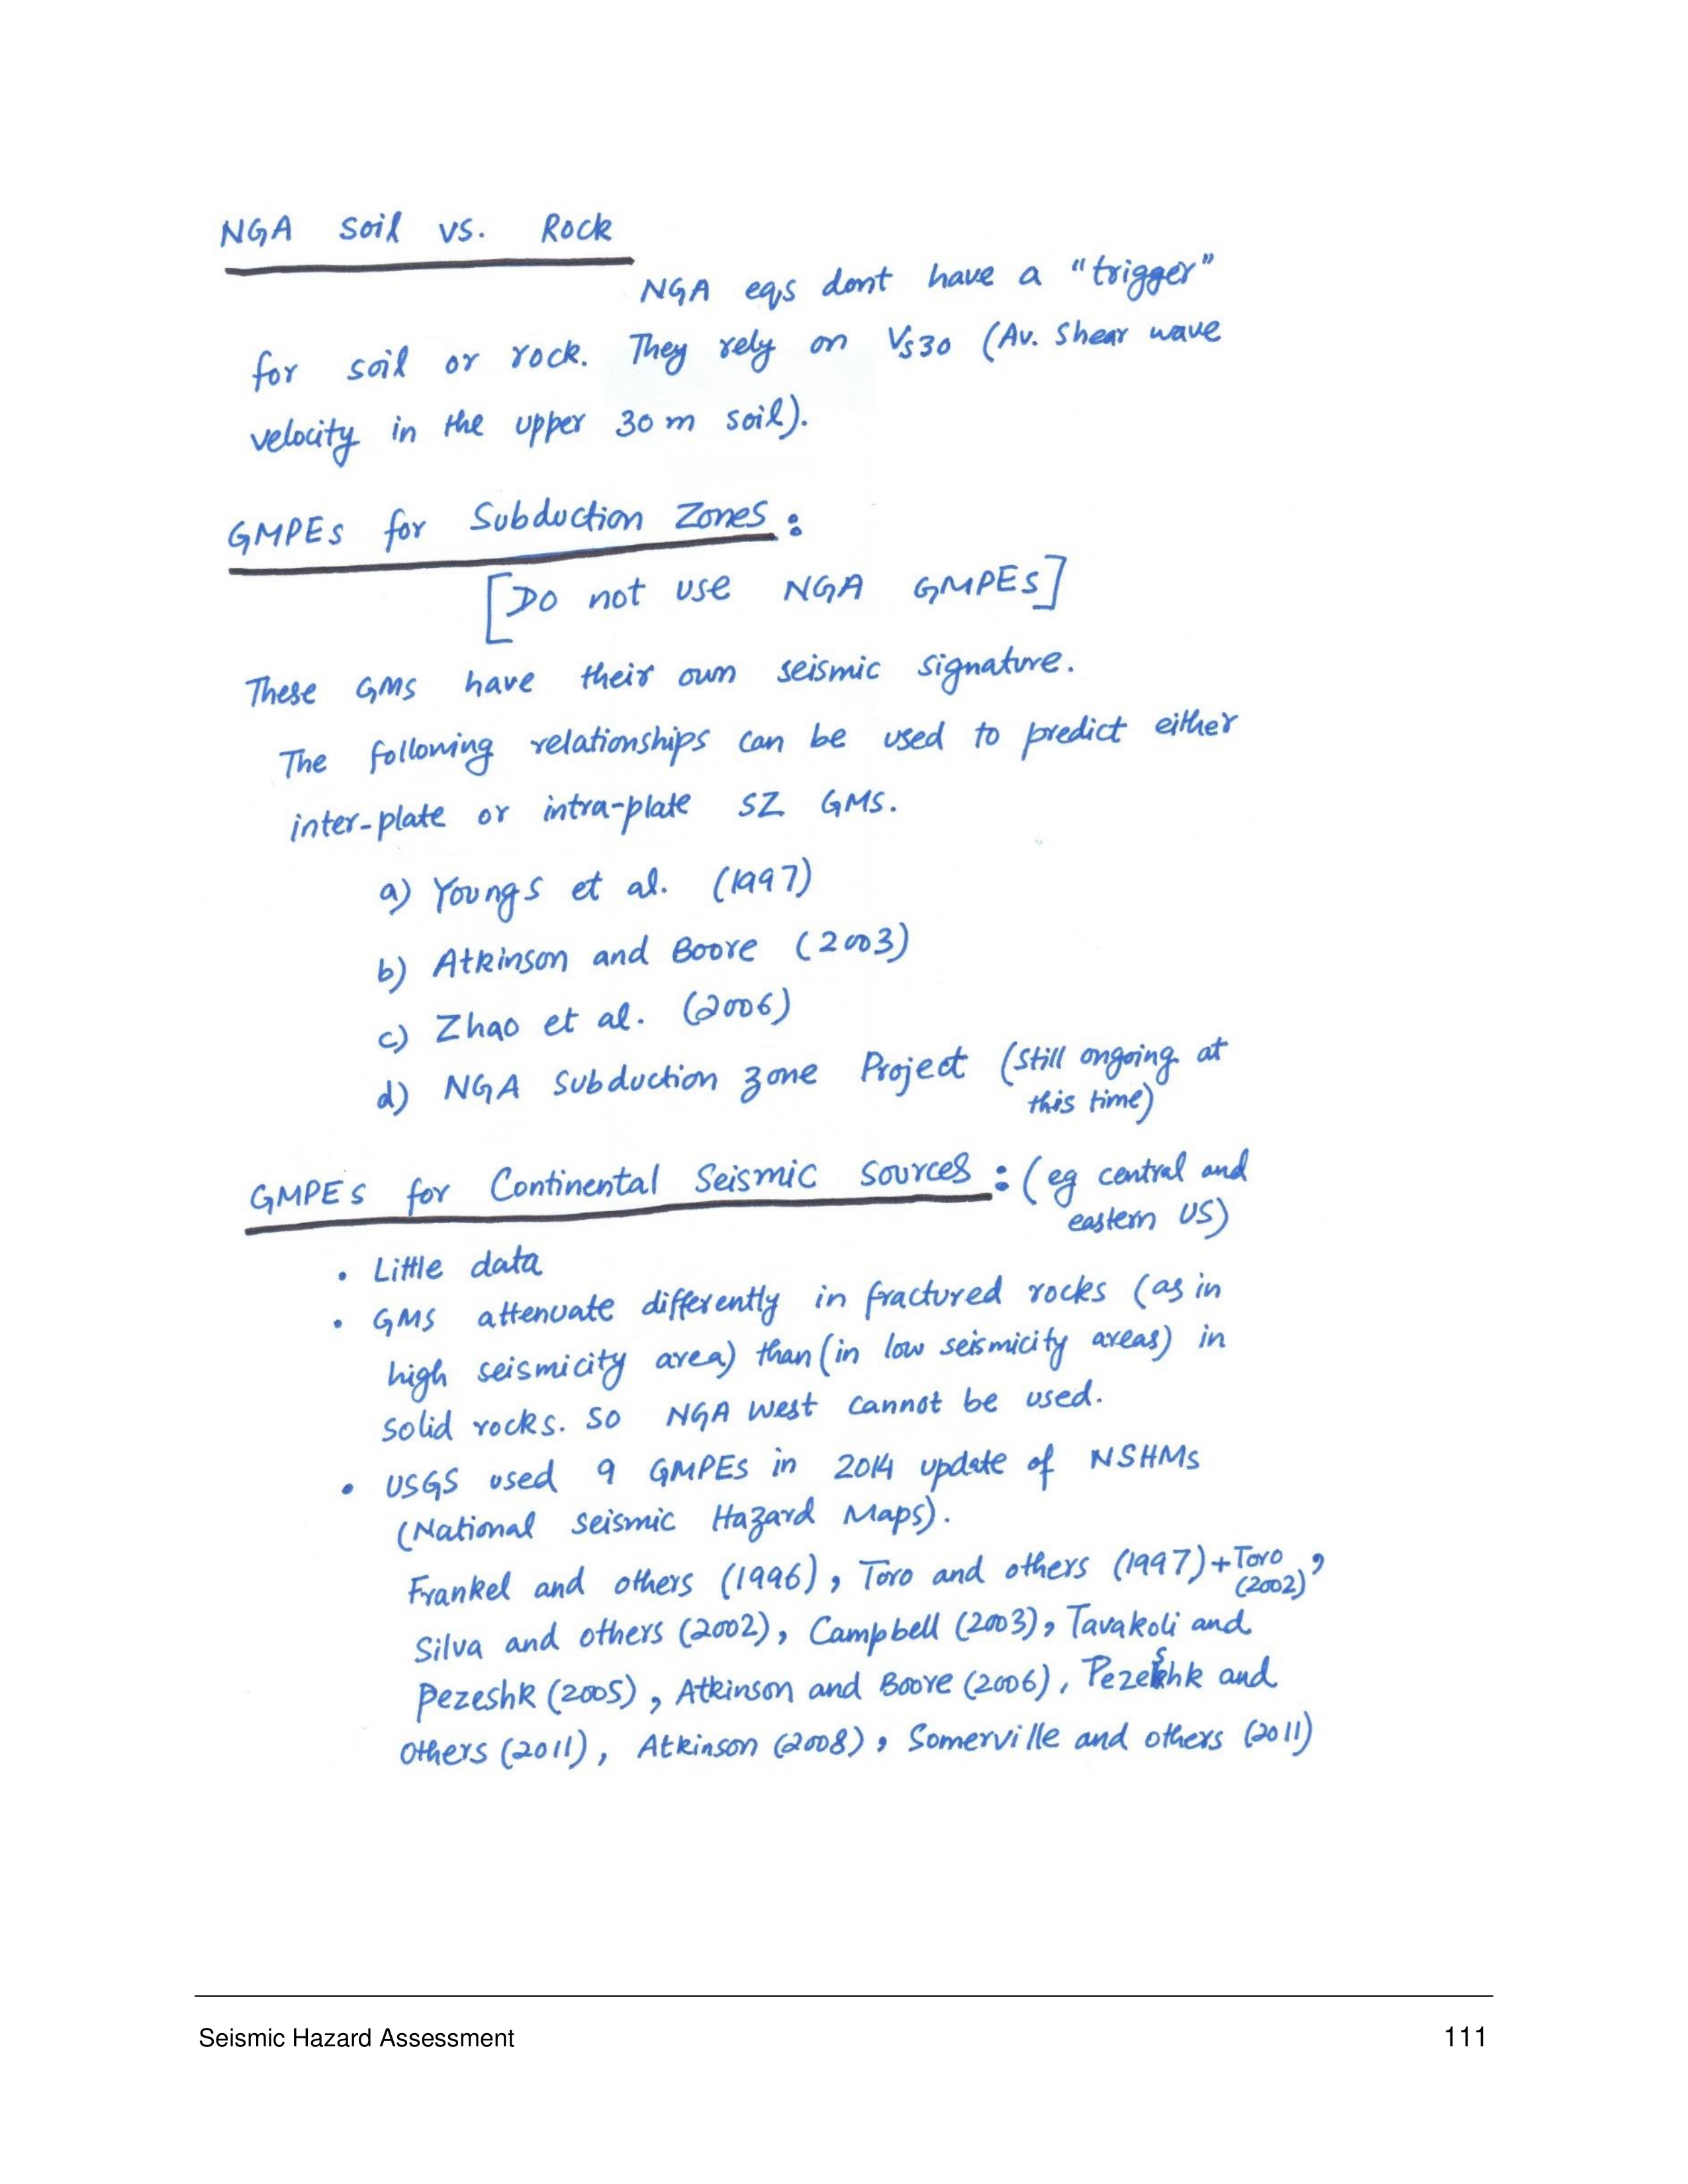 NGA Soil vs. Rock
NGA eqs dont have a "trigger"
for soil or rock. They rely on Vs30 (Av. Shear wave
velocity in the upper 30 m soil).
GMPEs for Subduction Zones :
[Do not use NGA GMPEs]
These GMs have their own seismic signature.
The following relationships can be used to predict either
inter-plate or intra-plate SZ GMs.
a) Youngs et al. (1997)
b) Atkinson and Boore (2003)
c) Zhao et al. (2006)
d) NGA Subduction zone Project (Still ongoing at
this time)
GMPEs for Continental Seismic Sources : (eg central and
eastern US)
• Little data
• GMs attenuate differently in fractured rocks (as in
high seismicity area) than (in low seismicity areas) in
solid rocks. So NGA West cannot be used.
• USGS used 9 GMPEs in 2014 update of NSHMs
(National Seismic Hazard Maps).
Frankel and others (1996), Toro and others (1997)+Toro (2002),
Silva and others (2002), Campbell (2003), Tavakoli and
Pezeshk (2005), Atkinson and Boore (2006), Pezeshk and
others (2011), Atkinson (2008), Somerville and others (2011)
Seismic Hazard Assessment 111